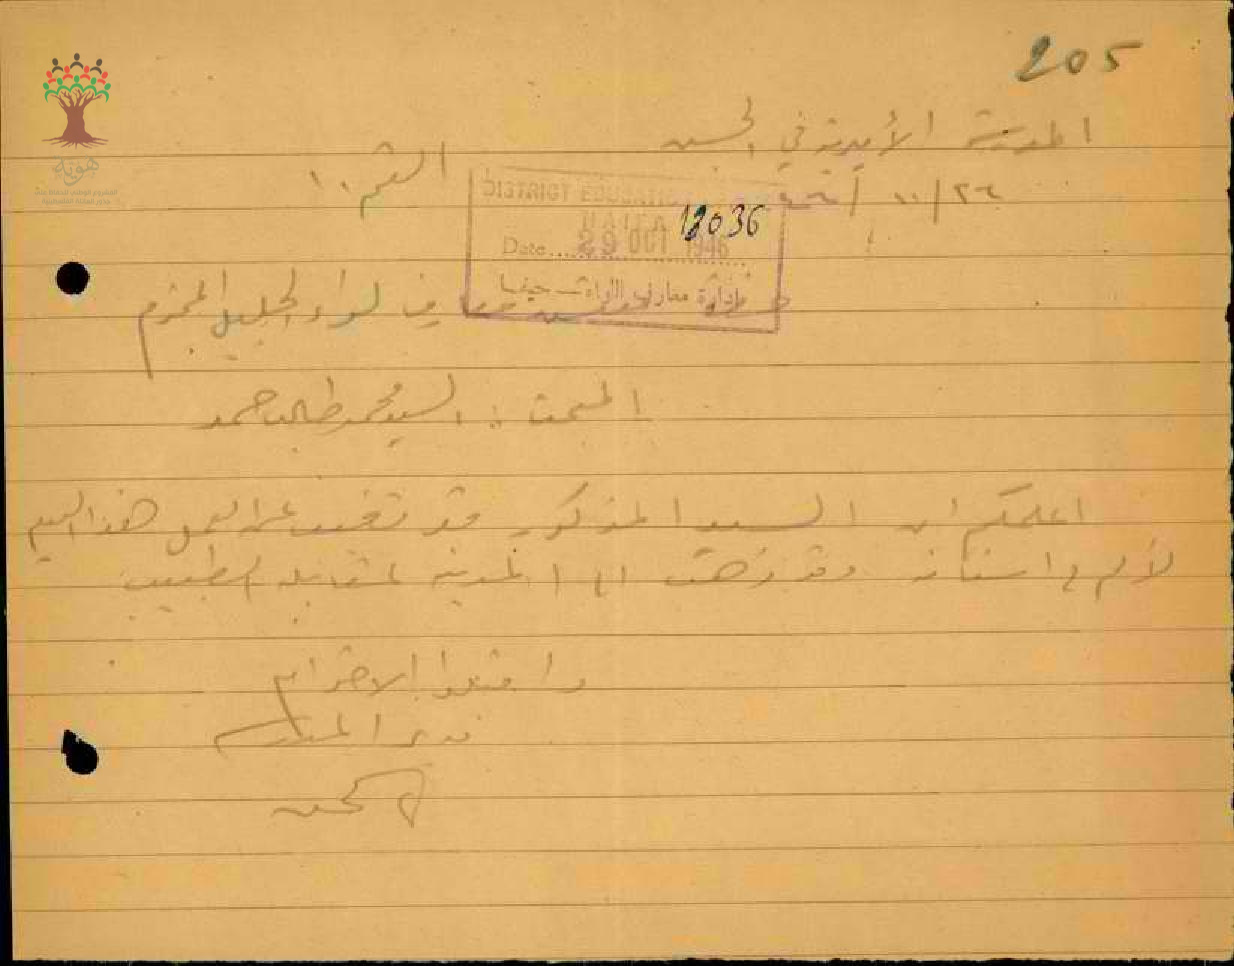 205
المدرسة الأميرية في الحسن
الرقم ١٠
٢٦/١٠/
DISTRICT EDUCATION
HAIFA
12036
Date 29 OCT 1946
إدارة معارف اللواء – حيفا
حضرة مفتش معارف لواء الجليل المحترم
المبحث : السيد محمد طالب حمد
اعلمكم ان السيد المذكور قد تغيب عن العمل هذا اليوم
لألم في اسنانه وقد ذهب الى المدينة لمقابلة الطبيب
واقبلوا الاحترام
مدير المدرسة
هوية